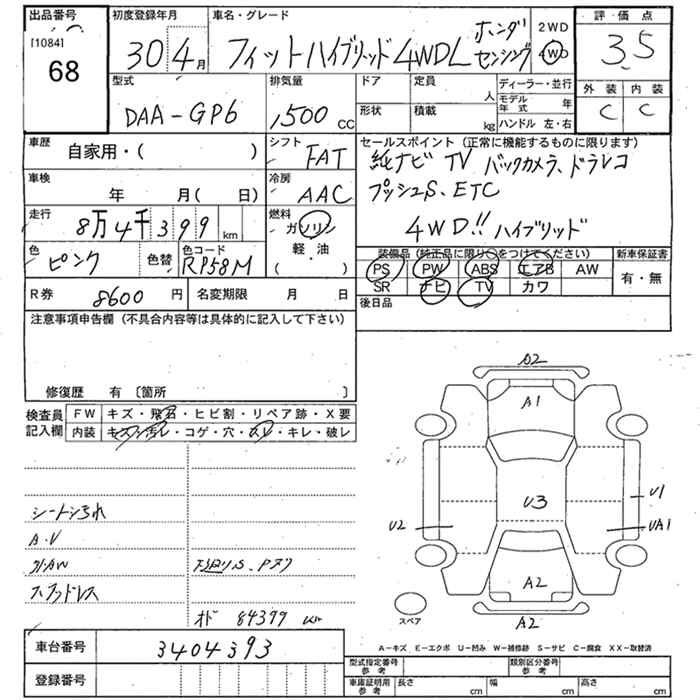 出品番号
[1084]
68
初度登録年月
30 4月
車名・グレード
フィットハイブリッド 4WD L ホンダ
センシング
2WD
4WD
評価点
3.5
外装 内装
C C
型式
DAA-GP6
排気量
1,500 CC
ドア 定員 人
形状 積載 kg
ディーラー・並行
モデル年式 年
ハンドル 左・右
車歴 自家用・( )
シフト FAT
車検 年 月( 日)
冷房 AAC
走行 8万4千399 km
燃料 ガソリン
軽・油
( ・ )
色 ピンク 色替 色コード RP58M
セールスポイント (正常に機能するものに限ります)
純ナビ TV バックカメラ、ドラレコ
プッシュS、ETC
4WD!! ハイブリッド
装備品 (純正品に限り○をつけてください) 新車保証書
PS PW ABS エアB AW 有・無
SR ナビ TV カワ
R券 8600 円 名変期限 月 日
後日品
注意事項申告欄 (不具合内容等は具体的に記入して下さい)
修復歴 有 〔箇所 〕
検査員記入欄
FW キズ・飛石・ヒビ割・リペア跡・X要
内装 キズ・汚レ・コゲ・穴・スレ・キレ・破レ
シートシミ汚れ
A・V
スペアアドレス
オド 84399 km
A2
A1
U3
U1
U2
UA1
A2
A2
スペア
車台番号 3404393
登録番号
A-キズ E-エクボ U-凹み W-補修跡 S-サビ C-腐食 XX-取替済
型式指定番号 参考 類別区分番号 参考
車庫証明用 参考 長さ cm 幅 cm 高さ cm